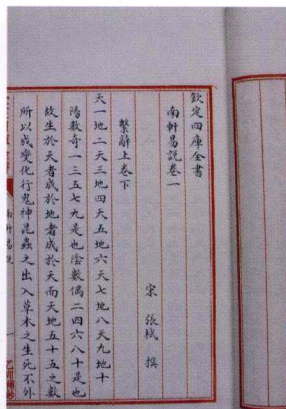 欽定四庫全書
南軒易說卷一
宋 張栻 撰
繫辭上卷下
天一地二天三地四天五地六天七地八天九地十
陽數奇一三五七九是也陰數偶二四六八十是也
故生於天者成於地生於地者成於天而天地五十五之數
所以成變化行鬼神昆蟲之出入草木之生死不外
南軒易說